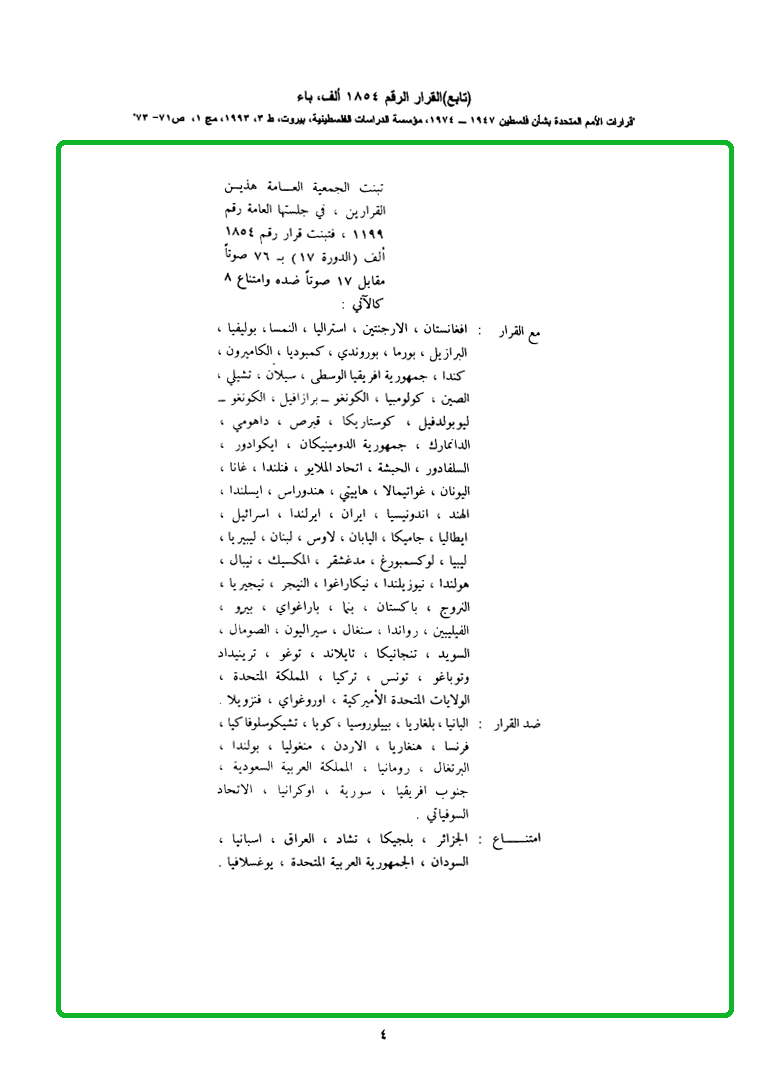 (تابع)القرار الرقم ١٨٥٤ ألف، باء
"قرارات الأمم المتحدة بشأن فلسطين ١٩٤٧ ــ ١٩٧٤، مؤسسة الدراسات الفلسطينية، بيروت، ط ٣، ١٩٩٣، مج ١، ص٧١- ٧٣"
تبنت الجمعية العــامة هذيــن
القرارين ، في جلستها العامة رقم
١١٩٩ ، فتبنت قرار رقم ١٨٥٤
ألف (الدورة ١٧) بـ ٧٦ صوتاً
مقابل ١٧ صوتاً ضده وامتناع ٨
كالآتي :
مع القرار : افغانستان ، الارجنتين ، استراليا ، النمسا، بوليفيا ،
البرازيل ، بورما ، بوروندي ، كمبوديا ، الكاميرون ،
كندا ، جمهورية افريقيا الوسطى ، سيلان ، تشيلي ،
الصين ، كولومبيا ، الكونغو ــ برازافيل ، الكونغو ــ
ليوبولدفيل ، كوستاريكا ، قبرص ، داهومي ،
الدانمارك ، جمهورية الدومينيكان ، ايكوادور ،
السلفادور ، الحبشة ، اتحاد الملايو ، فنلندا ، غانا ،
اليونان ، غواتيمالا ، هاييتي ، هندوراس ، ايسلندا ،
الهند ، اندونيسيا ، ايران ، ايرلندا ، اسرائيل ،
ايطاليا ، جاميكا ، اليابان ، لاوس ، لبنان ، ليبيريا ،
ليبيا ، لوكسمبورغ ، مدغشقر ، المكسيك ، نيبال ،
هولندا ، نيوزيلندا ، نيكاراغوا ، النيجر ، نيجيريا ،
النروج ، باكستان ، بنما ، باراغواي ، بيرو ،
الفيليبين ، رواندا ، سنغال ، سيراليون ، الصومال ،
السويد ، تنجانيكا ، تايلاند ، توغو ، ترينيداد
وتوباغو ، تونس ، تركيا ، المملكة المتحدة ،
الولايات المتحدة الأميركية ، اوروغواي ، فنزويلا .
ضد القرار : البانيا ، بلغاريا ، بييلوروسيا ، كوبا ، تشيكوسلوفاكيا ،
فرنسا ، هنغاريا ، الاردن ، منغوليا ، بولندا ،
البرتغال ، رومانيا ، المملكة العربية السعودية ،
جنوب افريقيا ، سورية ، اوكرانيا ، الاتحاد
السوفياتي .
امتنــــــاع : الجزائر ، بلجيكا ، تشاد ، العراق ، اسبانيا ،
السودان ، الجمهورية العربية المتحدة ، يوغسلافيا .
٤